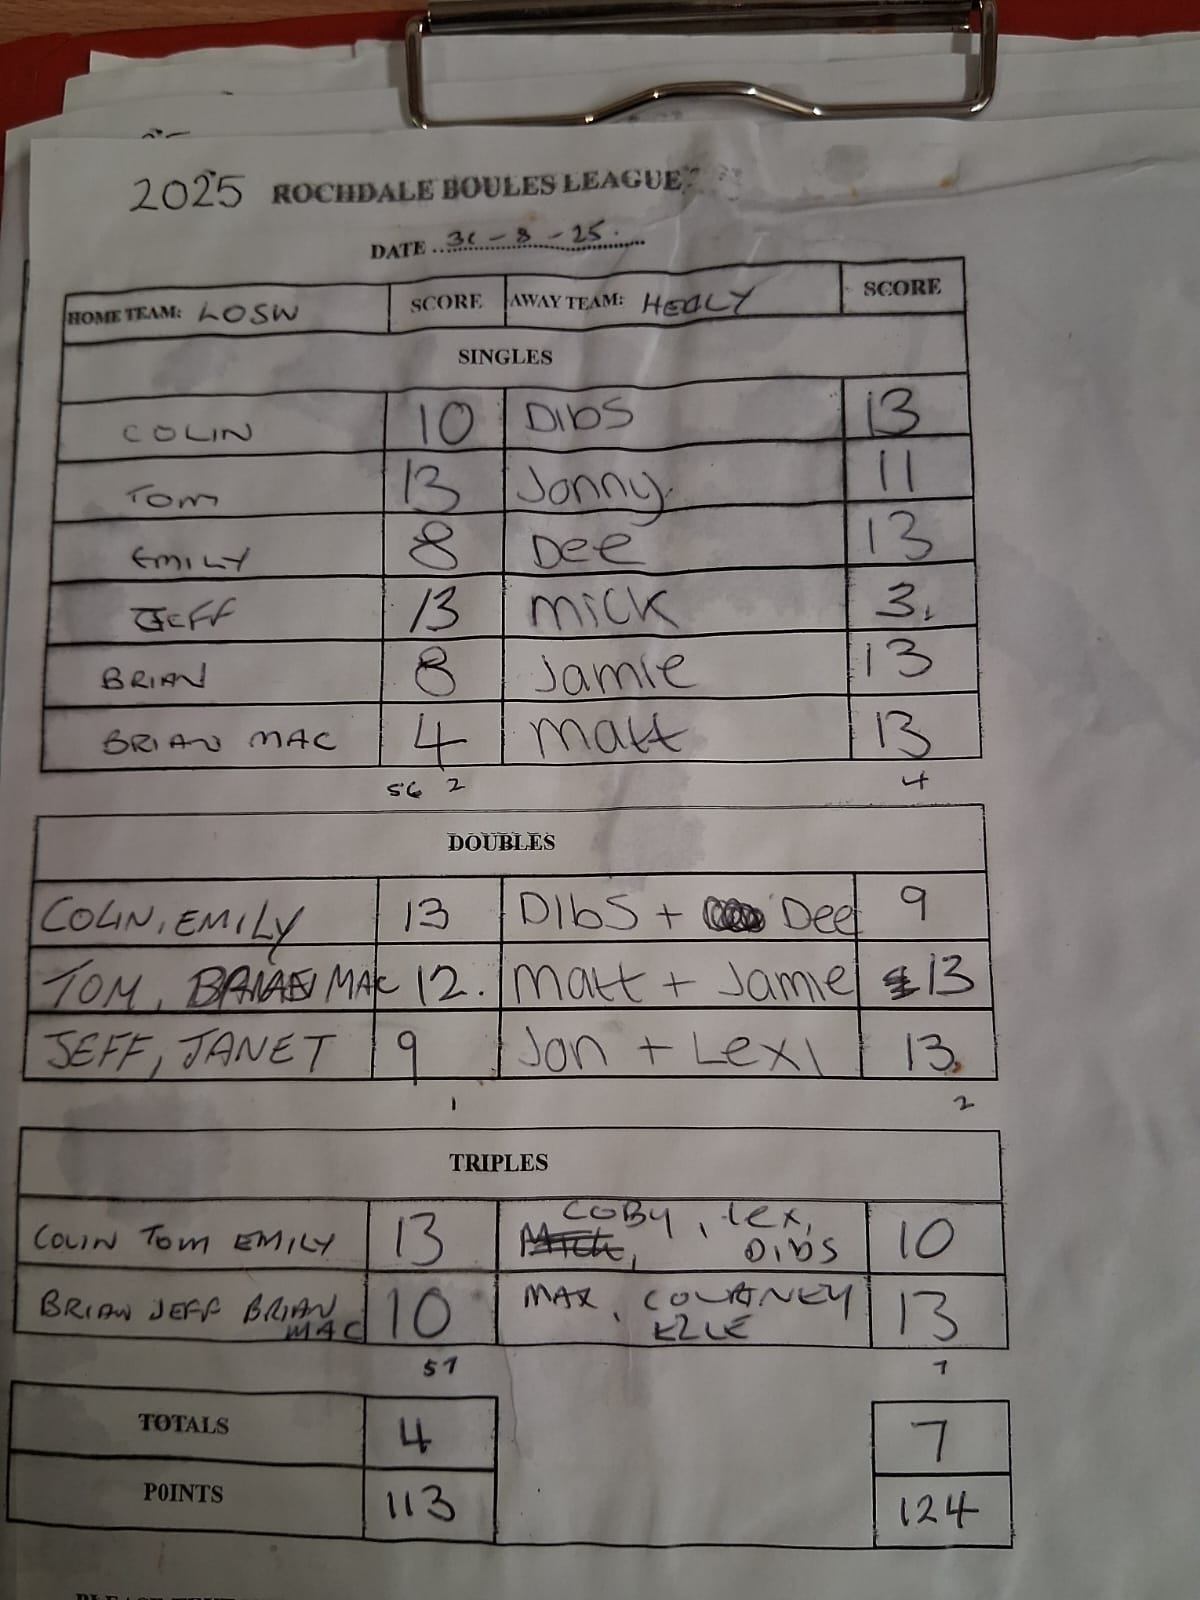 2025 ROCHDALE BOULES LEAGUE
DATE 31-8-25.
HOME TEAM: LOSW SCORE AWAY TEAM: HEALY SCORE
SINGLES
COLIN 10 DIbS 13
Tom 13 Jonny 11
EMILY 8 Dee 13
JEFF 13 mick 3.
BRIAN 8 Jamie 13
BRIAN MAC 4 matt 13
56 2 4
DOUBLES
COLIN, EMILY 13 DIbS + Dee 9
TOM, BRIAN MAC 12. Matt + Jamie 13
JEFF, JANET 9 Jon + LEXI 13.
1 2
TRIPLES
COLIN TOM EMILY 13 COBY, lex, DIbS 10
BRIAN JEFF BRIAN MAC 10 MAX, COURTNEY 13
57 1
TOTALS 4 7
POINTS 113 124